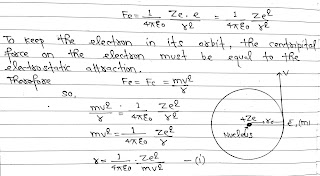 Fe = 1/4πε0 Ze.e/r2 = 1/4πε0 Ze2/r2
To keep the electron in its orbit, the centripital
force on the electron must be equal to the
electrostatic attraction.
Therefore Fc = Fe = mv2/r
so,
mv2/r = 1/4πε0 Ze2/r2
mv2 = 1/4πε0 Ze2/r
r = 1/4πε0 . Ze2/mv2 — (i)
V
+Ze r
Nucleus